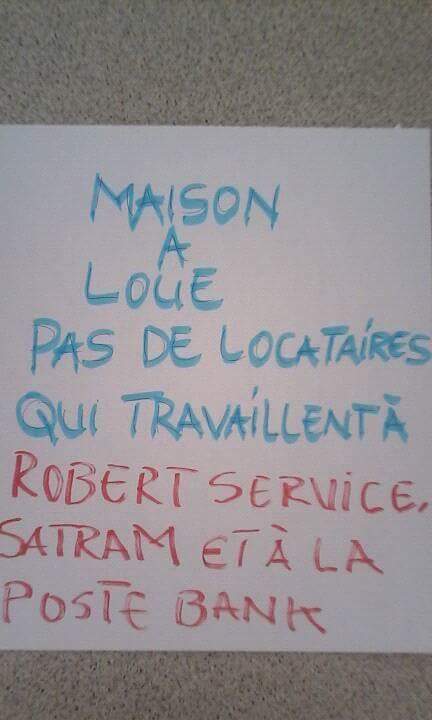 MAISON
A
LOUE
PAS DE LOCATAIRES
QUI TRAVAILLENT À
ROBERT SERVICE,
SATRAM ET À LA
POSTE BANK